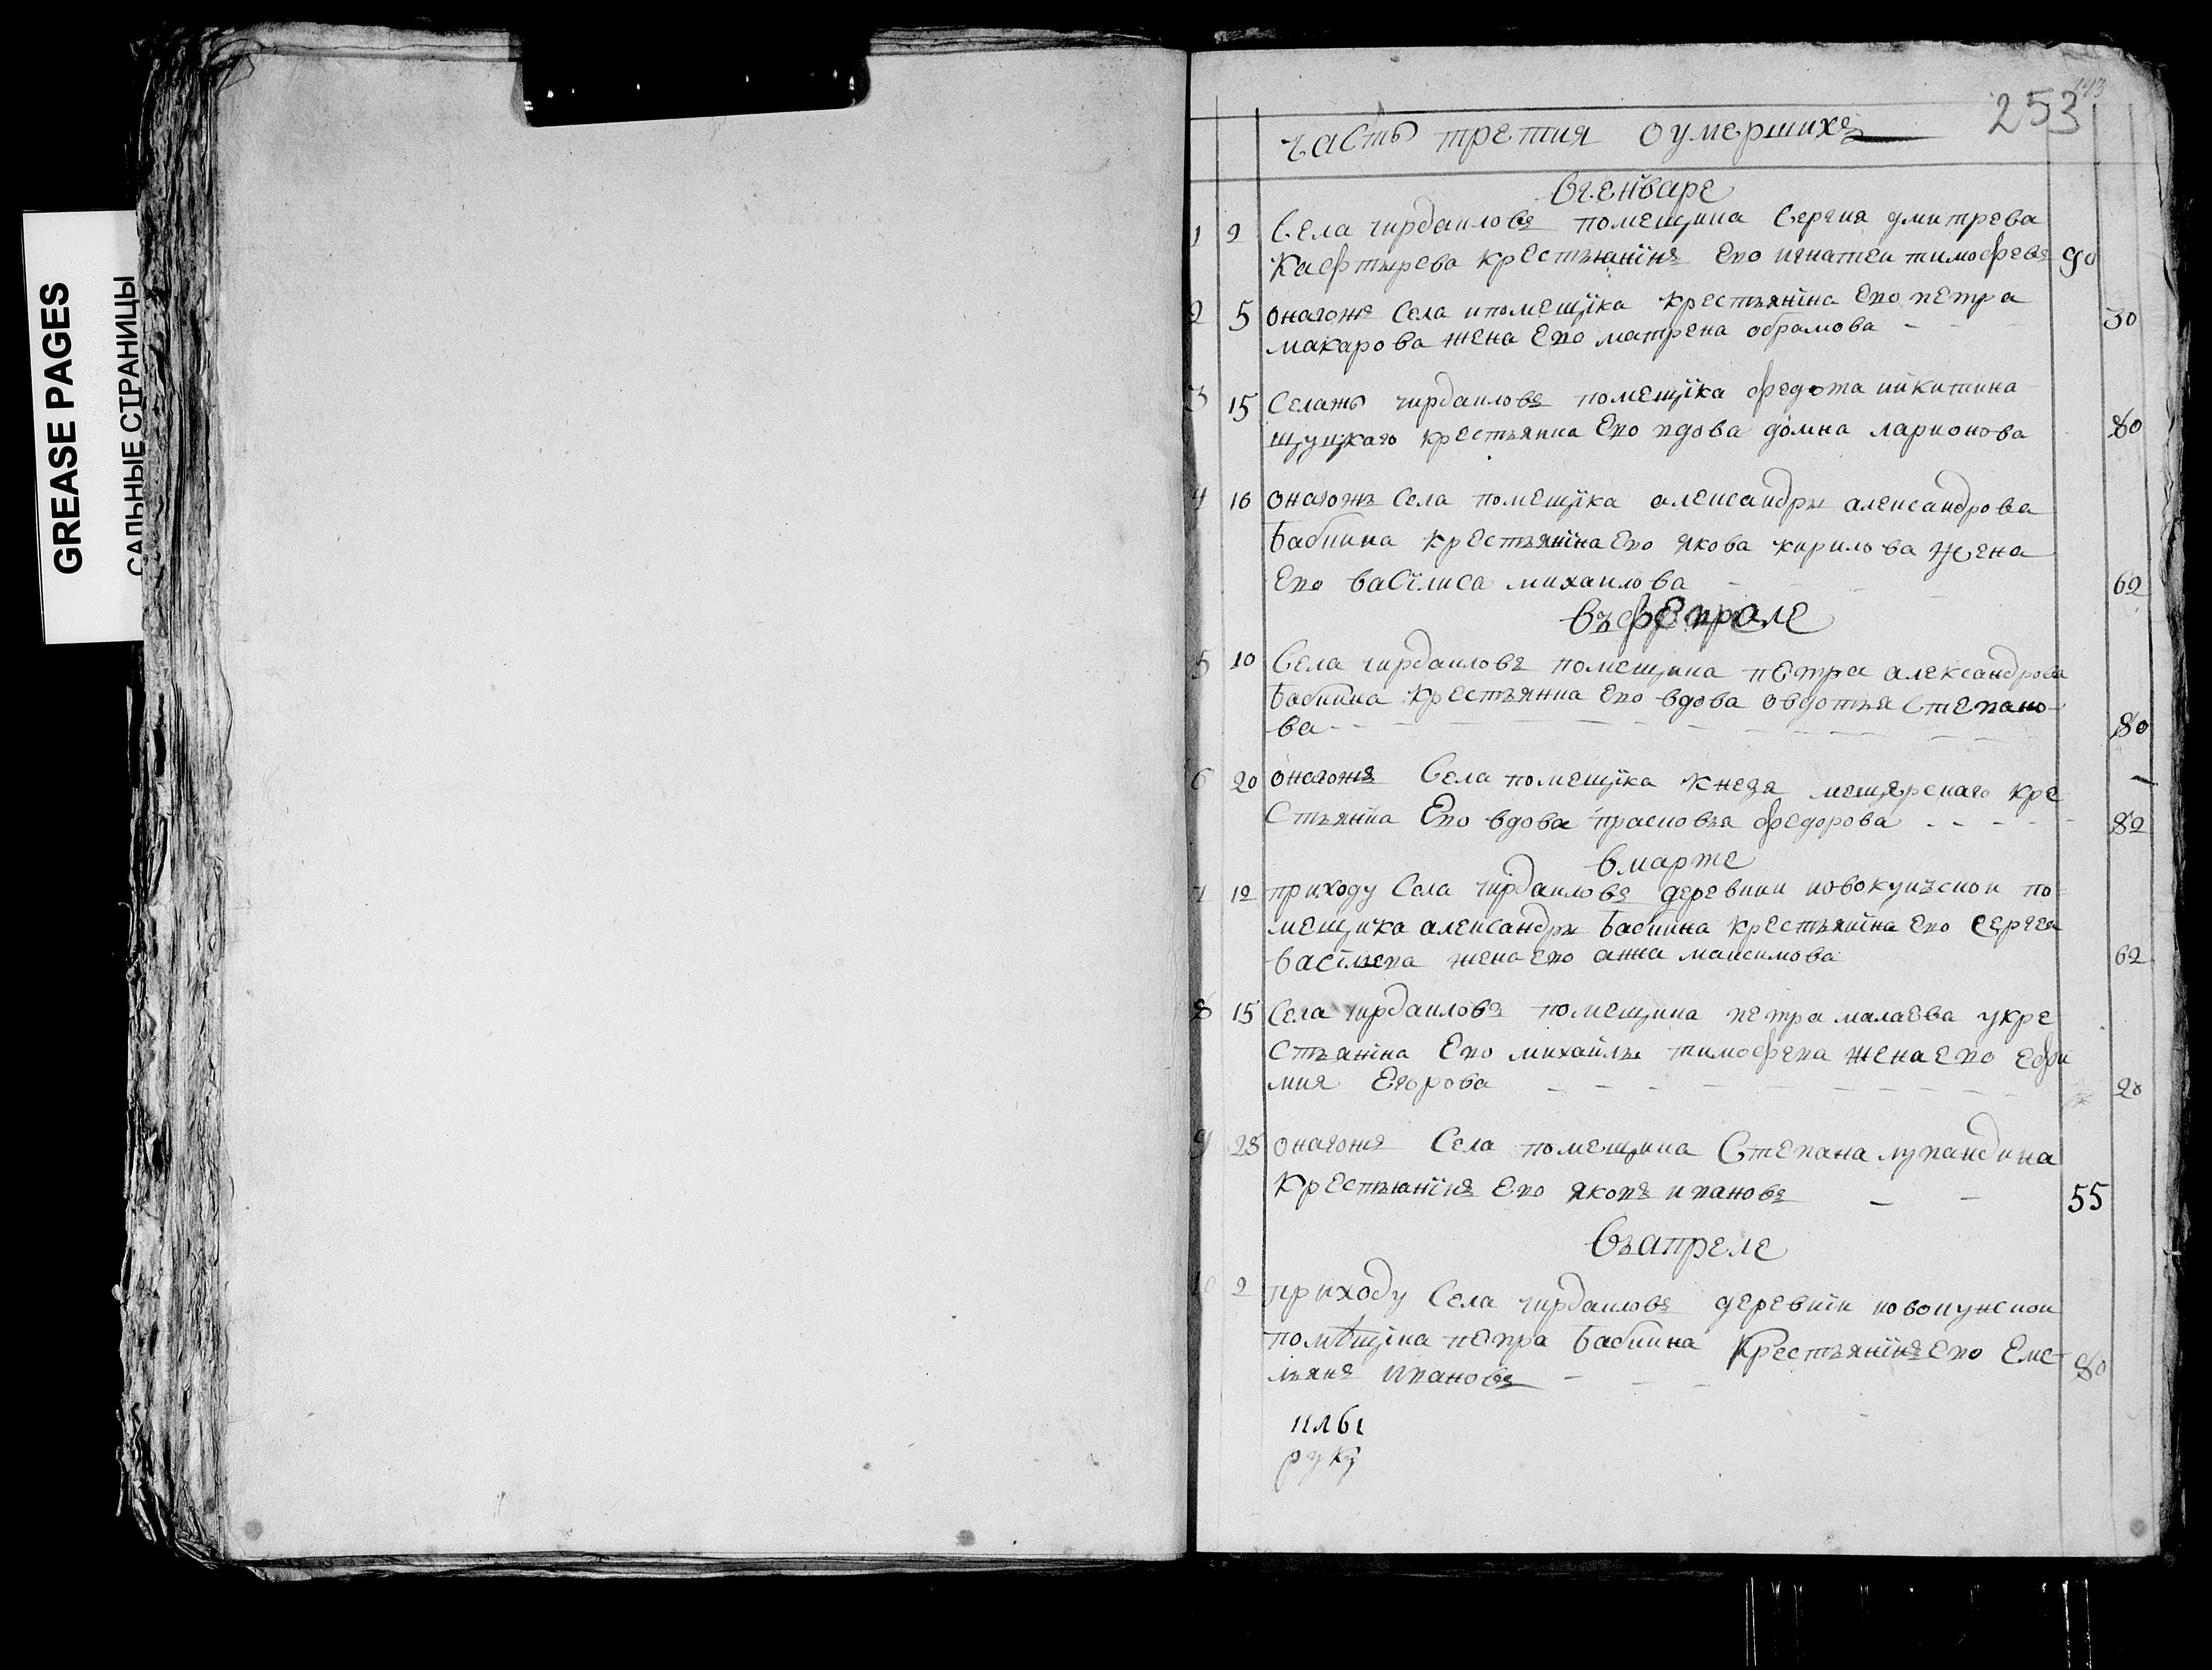 GREASE PAGES
САЛЬНЫЕ СТРАНИЦЫ
253
часть третия оумершихъ
Вгенваре
1 2 Села чирдаиловъ помещика Сергия дмитрева
крестьянинъ Ево игнатеи тимофевъ 90
2 5 онагожъ Села ипомещїка крестьянїна Ево петра
макарова жена Ево матрена обрамова 30
3 15 Селажъ чирдаиловъ помещїка федота никитина
крестьянина Ево вдова домна ларионова 80
4 16 онагожъ Села помещїка александры александрова
бабкина крестьянїна Ево якова кирилова жена
Ево васїлиса михаилова 62
Въфевроле
5 10 Села чирдаиловъ помещика петра александрова
бабкина крестьянина Ево вдова овдотья Степано-
ва 80
6 20 онагожъ Села помещїка кнезя мещярскаго кре
Стьянина Ево вдова прасковья федорова 82
Вмарте
7 12 приходу Села чирдаиловъ деревнии по-
мещика александры бабкина крестьянїна Ево сергея
васїлева жена Ево анна максимова 62
8 15 Села чирдаиловъ помещика петра малаева укре
Стьянїна Ево михаилы тимофева жена ево ефи
мия Егорова 20
9 28 онагожъ Села помещика Степана лупандина
крестьянїнъ Ево яковъ ивановъ 55
Въапреле
10 2 приходу Села чирдаиловъ деревнїи
помѣщїка петра бабкина крестьянїнъ Ево Еме
льянъ ивановъ 80
руку